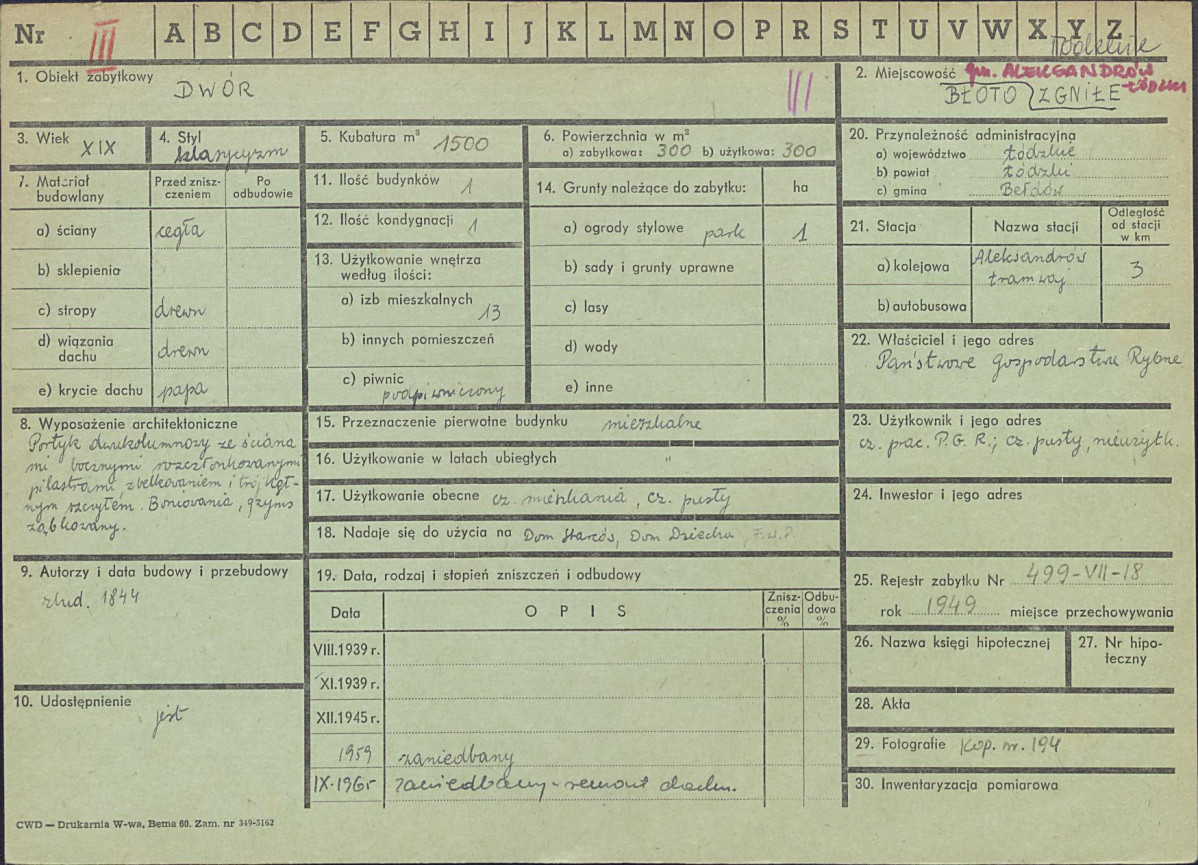 Nr III A B C D E F G H I J K L M N O P R S T U V W X Y Z
1. Obiekt zabytkowy DWÓR III
2. Miejscowość gm. ALEKSANDRÓW ŁÓDZKI
BŁOTO ZGNIŁE
3. Wiek XIX
4. Styl klasycyzm
5. Kubatura m³ 1500
6. Powierzchnia w m²
a) zabytkowa: 300 b) użytkowa: 300
7. Materiał budowlany
Przed znisz-
czeniem
Po
odbudowie
a) ściany cegła
b) sklepienia
c) stropy drewn
d) wiązania
dachu drewn
e) krycie dachu papa
11. Ilość budynków 1
12. Ilość kondygnacji 1
13. Użytkowanie wnętrza
według ilości:
a) izb mieszkalnych 13
b) innych pomieszczeń
c) piwnic podpiwniczony
14. Grunty należące do zabytku: ha
a) ogrody stylowe park 1
b) sady i grunty uprawne
c) lasy
d) wody
e) inne
20. Przynależność administracyjna
a) województwo Łódzkie
b) powiat Łódzki
c) gmina Bełdów
21. Stacja Nazwa stacji
Odległość
od stacji
w km
a) kolejowa Aleksandrów
tramwaj 3
b) autobusowa
22. Właściciel i jego adres
Państwowe gospodarstwa Rybne
8. Wyposażenie architektoniczne
Portyk dwukolumnowy ze ściana
mi bocznymi rozczłonkowanymi
pilastrami, zbelkowaniem i trójkąt-
nym szczytem. Boniowania, gzyms
ząbkowany.
15. Przeznaczenie pierwotne budynku mieszkalne
16. Użytkowanie w latach ubiegłych "
17. Użytkowanie obecne cz. mieszkania, cz. pusty
18. Nadaje się do użycia na Dom Starców, Dom Dziecka, F.W.P.
23. Użytkownik i jego adres
cz. prac. P.G.R.; cz. pusty, nieużytk.
24. Inwestor i jego adres
9. Autorzy i data budowy i przebudowy
zbud. 1844
10. Udostępnienie
jest
19. Data, rodzaj i stopień zniszczeń i odbudowy
Data OPIS
Znisz-
czenia
%
Odbu-
dowa
%
VIII.1939 r.
XI.1939 r.
XII.1945 r.
1959 zaniedbany
IX.1965 zaniedbany - remont dachu.
25. Rejestr zabytku Nr 499-VII-18
rok 1949 miejsce przechowywania
26. Nazwa księgi hipotecznej
27. Nr hipo-
teczny
28. Akta
29. Fotografie kop. nr. 194
30. Inwentaryzacja pomiarowa
CWD — Drukarnia W-wa, Bema 60. Zam. nr 349-5162